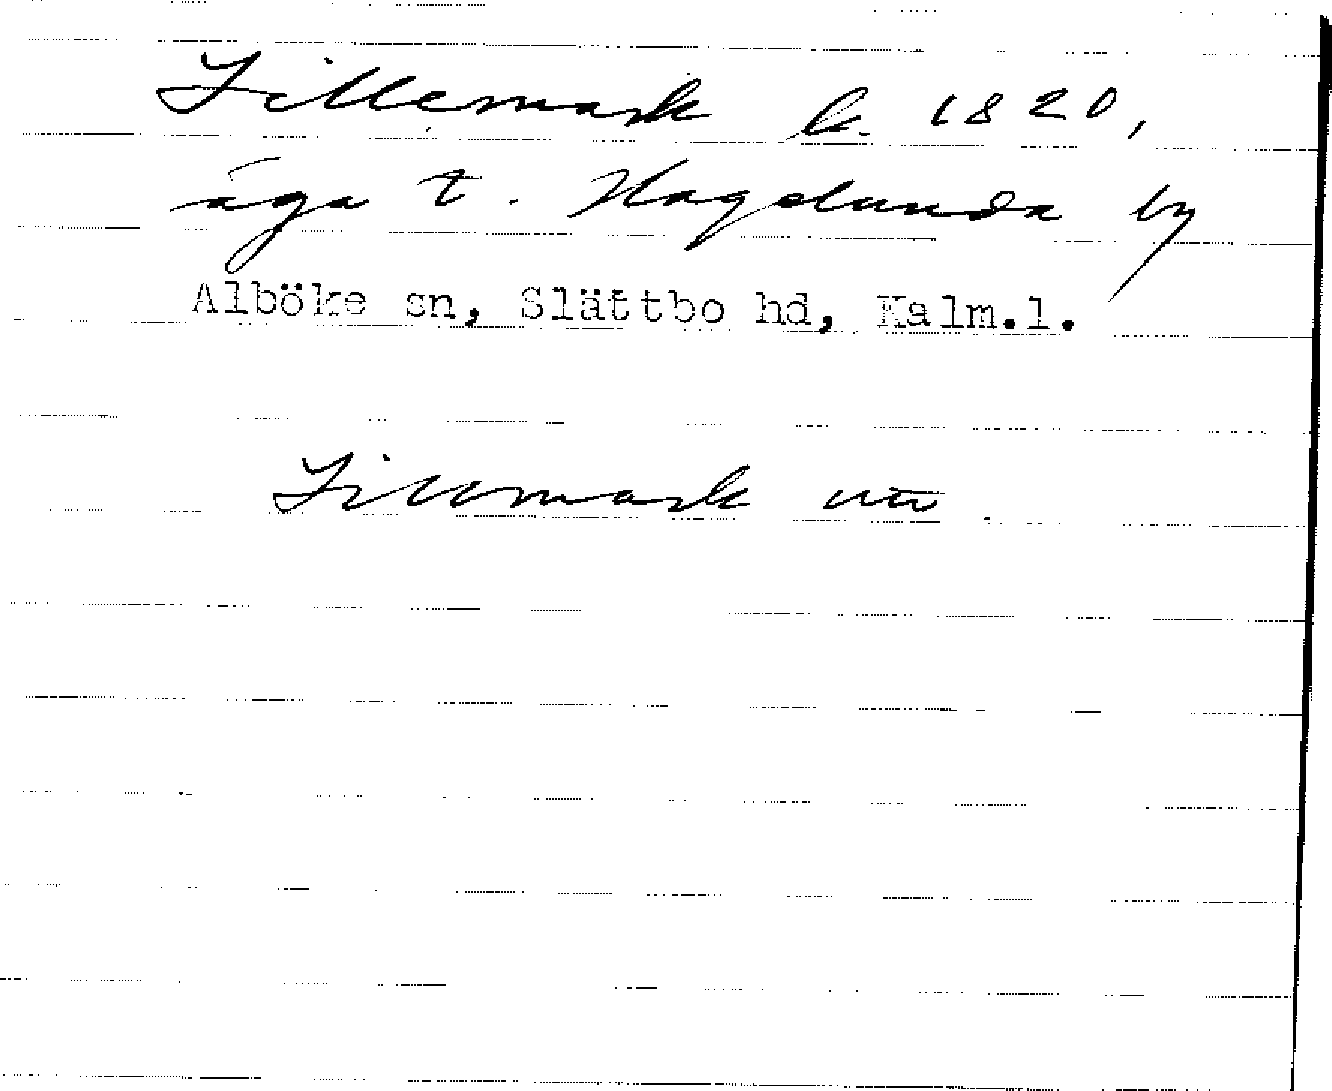 Lillemark k. 1820,
äga t. Hagelunda by
Alböke sn, Slättbo hd, Kalm.l.
Lillmark